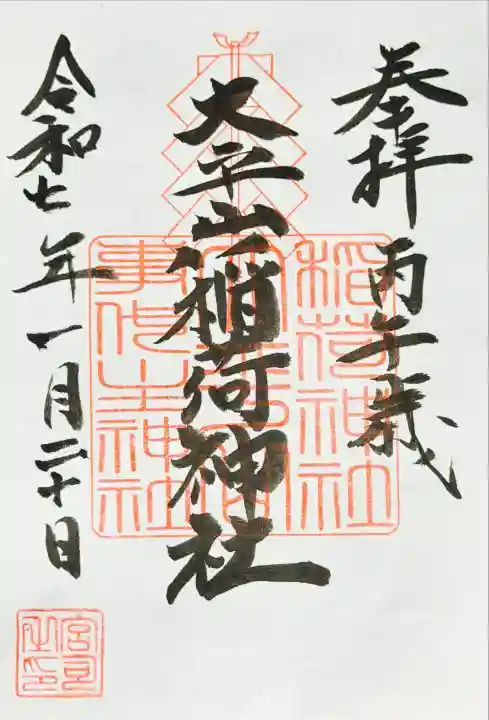 奉拝
丙午歳
大平山稲荷神社
令和七年一月二十日
稲荷神社
事代主神社